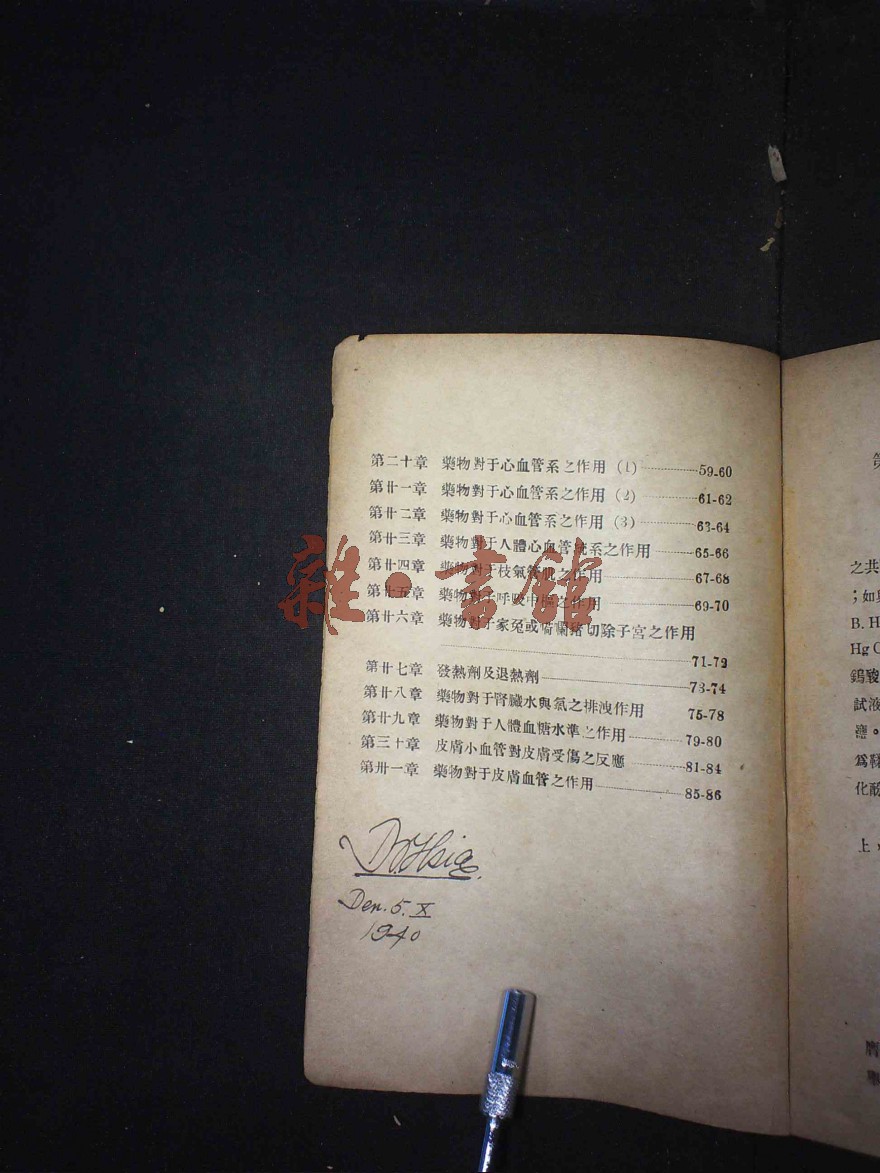 第二十章 藥物對于心血管系之作用 (1) 59-60
第廿一章 藥物對于心血管系之作用 (2) 61-62
第廿二章 藥物對于心血管系之作用 (3) 63-64
第廿三章 藥物對于人體心血管統系之作用 65-66
第廿四章 藥物對于枝氣管肌之作用 67-68
第廿五章 藥物對于呼吸中樞之作用 69-70
第廿六章 藥物對于家兎或嗬囒豬切除子宮之作用
71-72
第廿七章 發熱劑及退熱劑 73-74
第廿八章 藥物對于腎臟水與氯之排洩作用 75-78
第廿九章 藥物對于人體血糖水準之作用 79-80
第三十章 皮膚小血管對皮膚受傷之反應 81-84
第卅一章 藥物對于皮膚血管之作用 85-86
Hsia
Den. 5. X
1940
雜·書館
之共
B. H
Hg C
試液
化酚
上